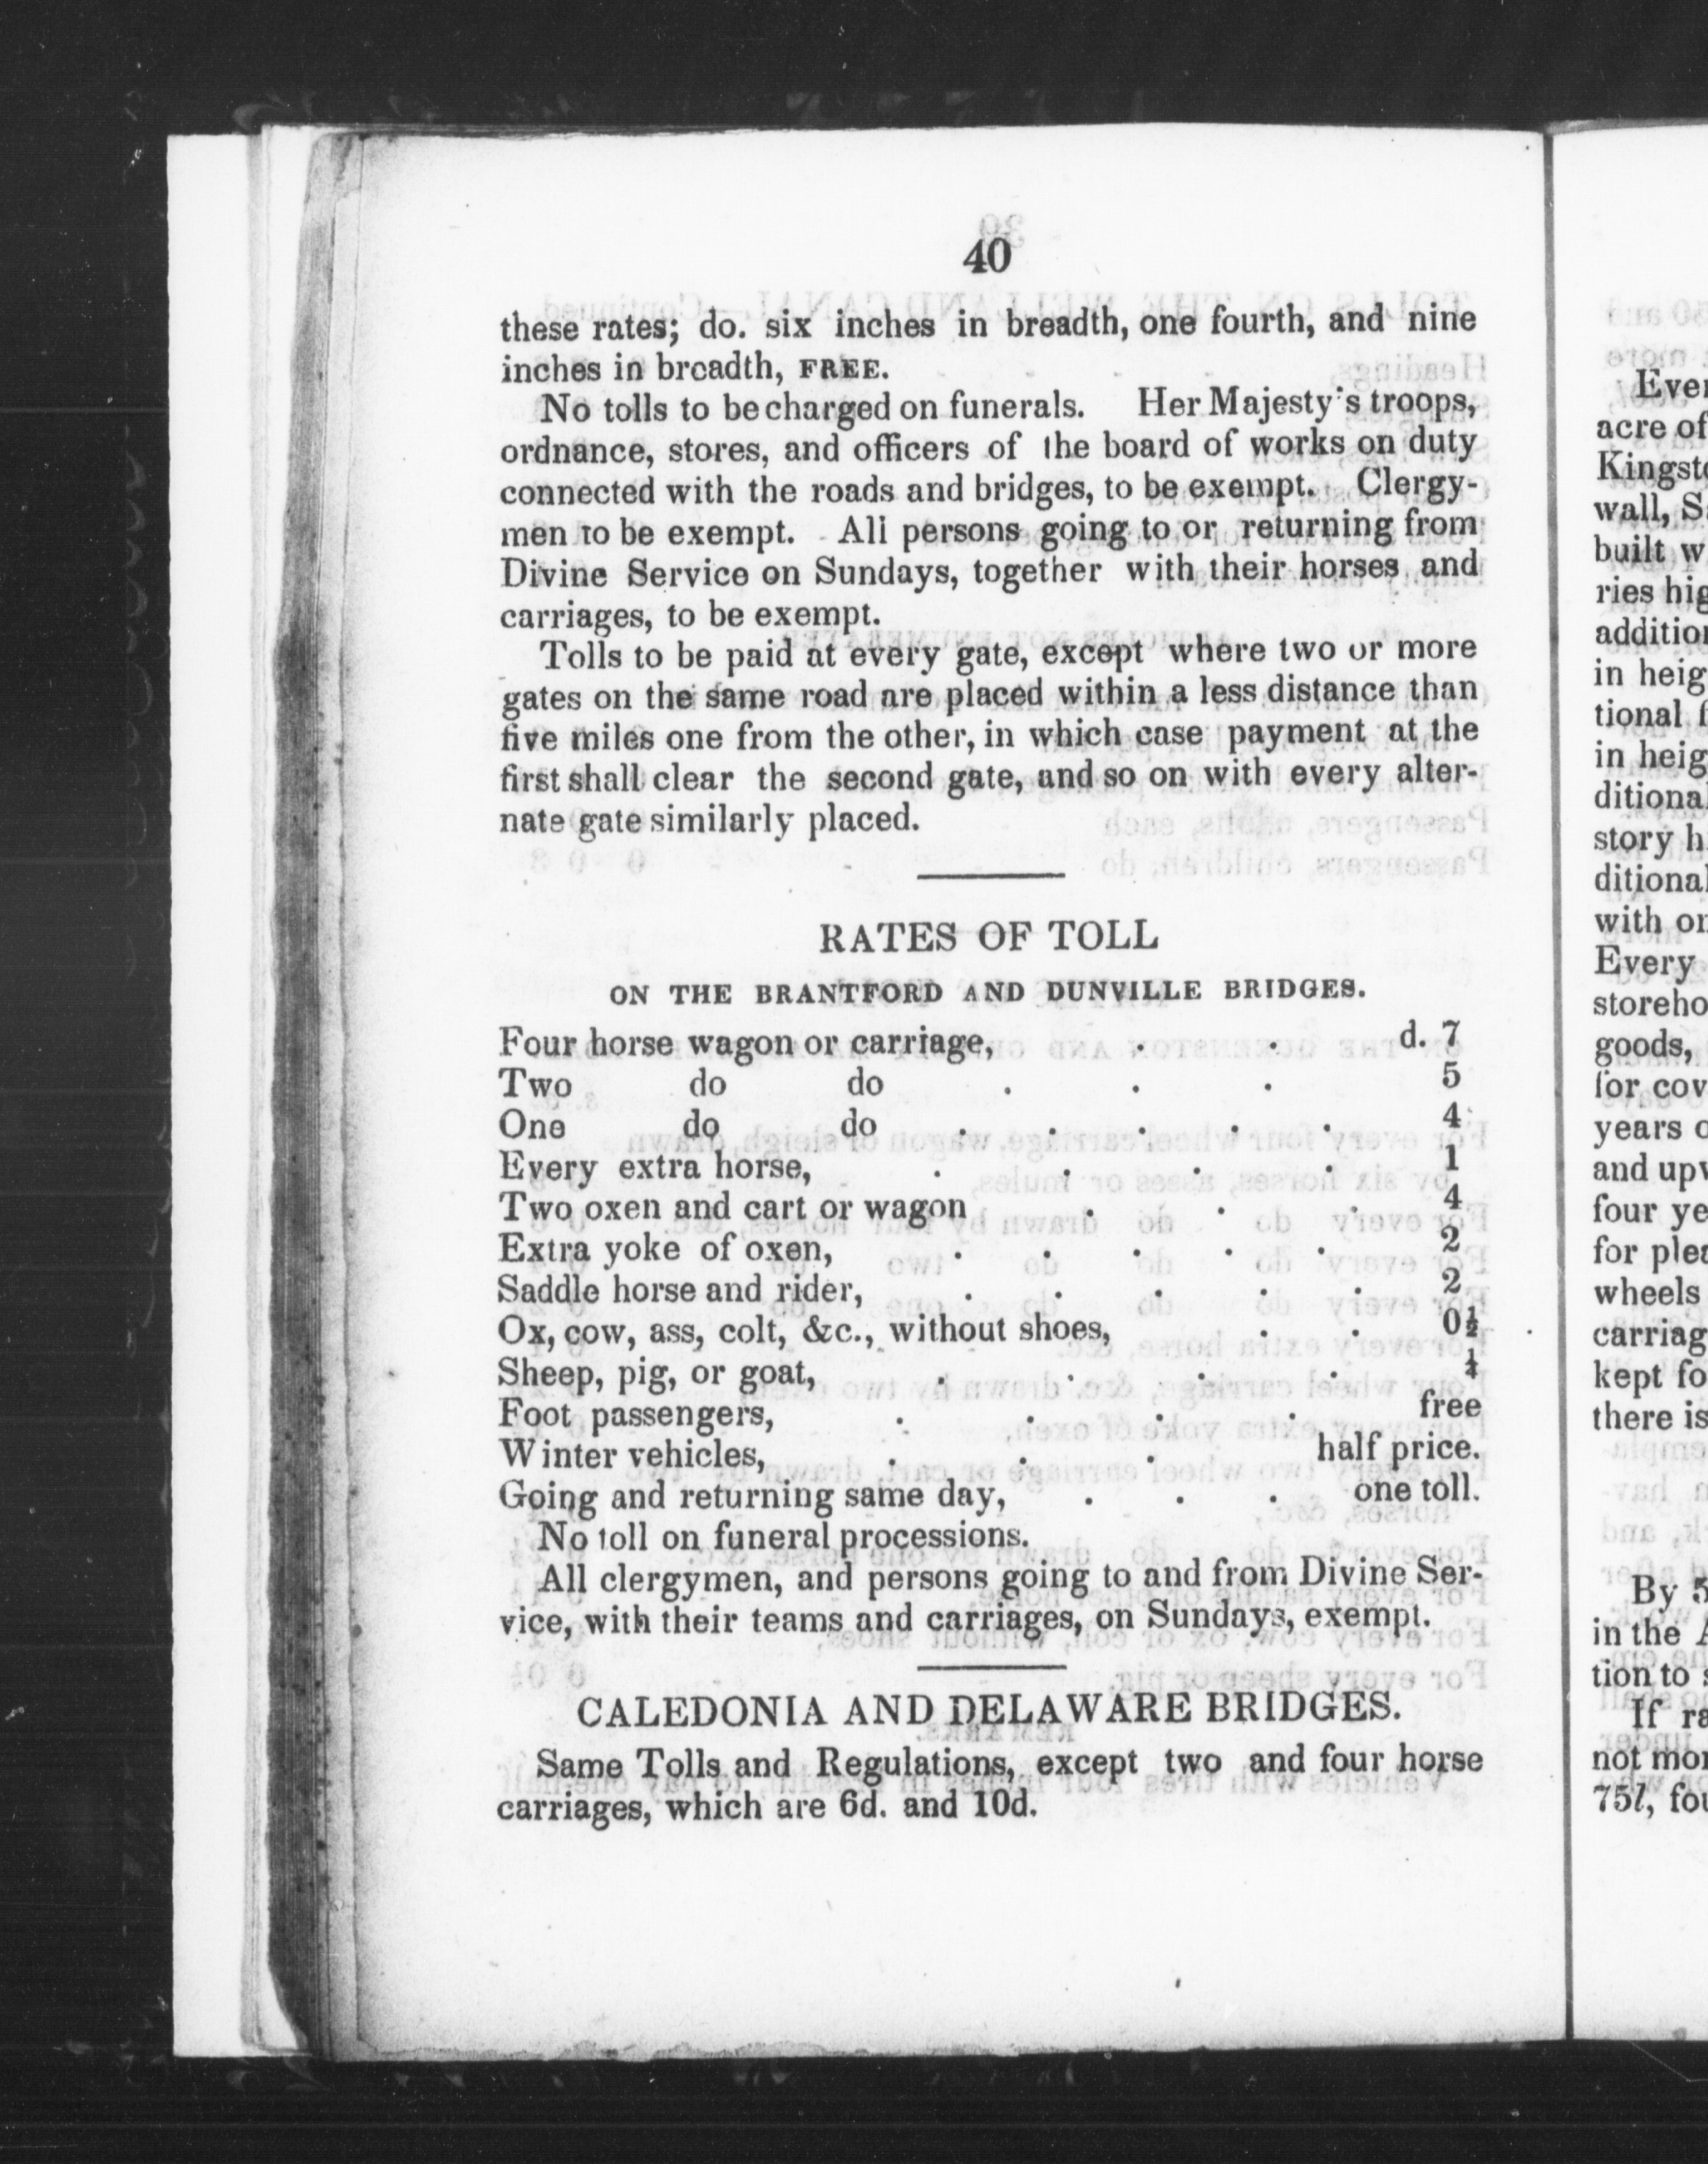 40
these rates; do. six inches in breadth, one fourth, and nine
inches in breadth, FREE.
No tolls to be charged on funerals. Her Majesty's troops,
ordnance, stores, and officers of the board of works on duty
connected with the roads and bridges, to be exempt. Clergy-
men to be exempt. All persons going to or returning from
Divine Service on Sundays, together with their horses and
carriages, to be exempt.
Tolls to be paid at every gate, except where two or more
gates on the same road are placed within a less distance than
five miles one from the other, in which case payment at the
first shall clear the second gate, and so on with every alter-
nate gate similarly placed.
RATES OF TOLL
ON THE BRANTFORD AND DUNVILLE BRIDGES.
Four horse wagon or carriage, . . d. 7
Two do do . . . 5
One do do . . . . . 4
Every extra horse, . . . . 1
Two oxen and cart or wagon . . . 4
Extra yoke of oxen, . . . . . 2
Saddle horse and rider, . . . . . 2
Ox, cow, ass, colt, &c., without shoes, . . 0½
Sheep, pig, or goat, . . . . ¼
Foot passengers, . . . . free
Winter vehicles, . . . half price.
Going and returning same day, . . . one toll.
No toll on funeral processions.
All clergymen, and persons going to and from Divine Ser-
vice, with their teams and carriages, on Sundays, exempt.
CALEDONIA AND DELAWARE BRIDGES.
Same Tolls and Regulations, except two and four horse
carriages, which are 6d. and 10d.
acre of
built w
in heig
in heig
with or
Every
goods,
years o
for
wheels
kept fo
there is
By 5
in the A
tion to
If
75l, fou